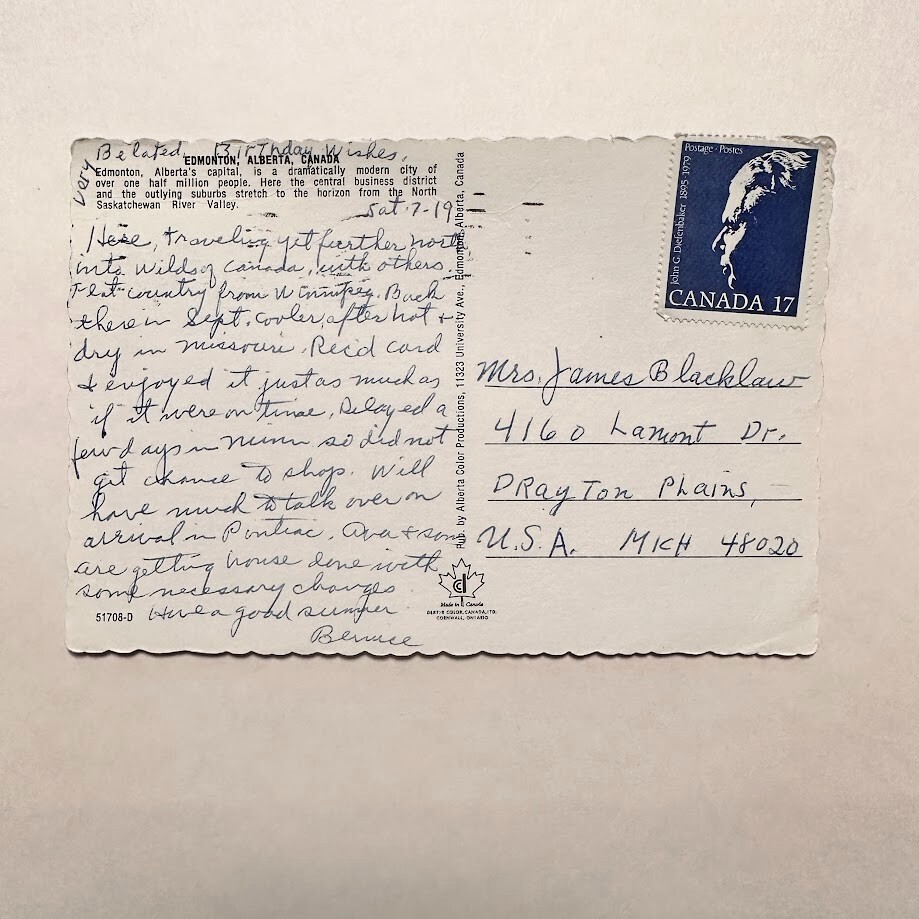 Very
Belated Birthday Wishes,
EDMONTON, ALBERTA, CANADA
Edmonton, Alberta's capital, is a dramatically modern city of
over one half million people. Here the central business district
and the outlying suburbs stretch to the horizon from the North
Saskatchewan River Valley.
Sat. 7-19
Here, traveling yet further north
into wilds of Canada, with others.
Flat country from Winnipeg. Back
there in Sept. cooler, after hot +
dry in Missouri. Rec'd card
& enjoyed it just as much as
if it were on time. Delayed a
few days in Minn so did not
get chance to shop. Will
have much to talk over on
arrival in Pontiac. Ava + son
are getting house done with
some necessary changes.
Have a good summer
Bernice
51708-D
Pub. by Alberta Color Productions, 11323 University Ave., Edmonton, Alberta, Canada
Made in Canada
DEXTER COLOR, CANADA, LTD.
CORNWALL, ONTARIO
Postage · Postes
John G. Diefenbaker 1895-1979
CANADA 17
Mrs. James Blacklaw
4160 Lamont Dr.
DRayTon Phains, —
U.S.A. MICH 48020